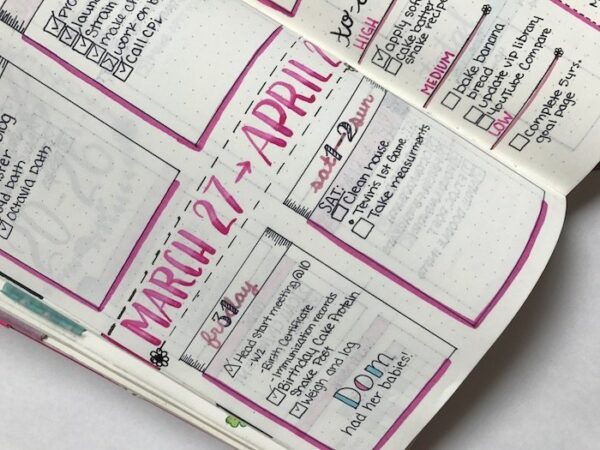 Laun
Strain
make
work on b
Call CPS
cold bath
Octavia bath
MARCH 27 → APRIL 2
sat 1-2 sun
SAT:
Clean house
Tevin's 1st Game
Take measurments
fri31day
Head Start meeting @10
-W2
-Birth Certificate
-Immunization records
Birthday Cake Protein
Shake Post
Weigh and log
Dom
had her babies!
to-
HIGH
apply
cake batter
shake recipe
MEDIUM
bake banana
bread
update vip library
YouTube Compare
LOW
Complete 5 yrs.
goal page